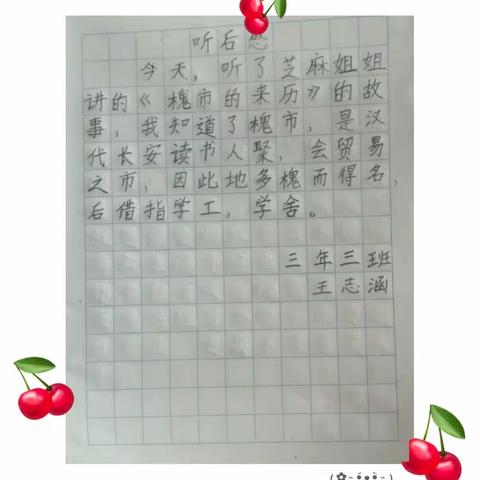 听后感
今天，听了芝麻姐姐
讲的《槐市的来历》的故
事，我知道了槐市，是汉
代长安读书人聚，会贸易
之市，因此地多槐而得名，
后借指学工，学舍。
三年三班
王志涵